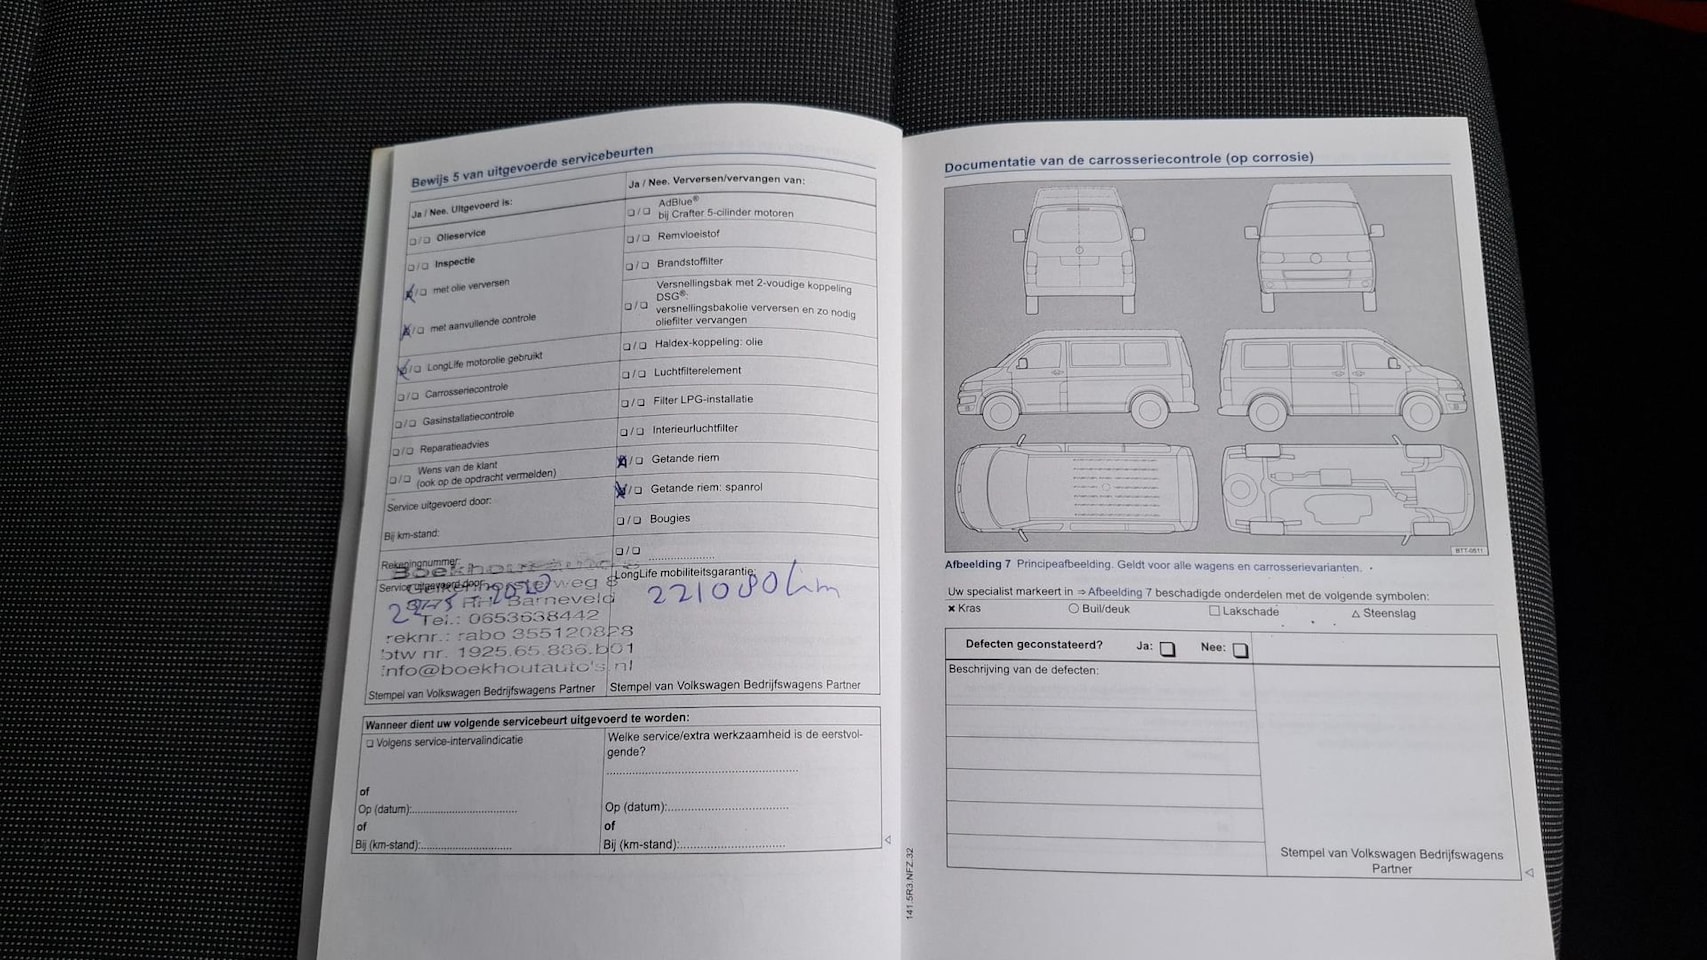 Bewijs 5 van uitgevoerde servicebeurten
Ja / Nee. Uitgevoerd is:
❑/❑ Olieservice
❑/❑ Inspectie
❑/❑ met olie verversen
❑/❑ met aanvullende controle
❑/❑ LongLife motorolie gebruikt
❑/❑ Carrosseriecontrole
❑/❑ Gasinstallatiecontrole
❑/❑ Reparatieadvies
❑/❑ Wens van de klant
(ook op de opdracht vermelden)
Service uitgevoerd door:
Bij km-stand:
Rekeningnummer:
Service uitgevoerd door:
Boekhout
weg 8
Barneveld
Tel.: 0653638442
reknr.: rabo 355120828
btw nr. 1925.65.886.b01
info@boekhoutauto's.nl
Stempel van Volkswagen Bedrijfswagens Partner
Ja / Nee. Verversen/vervangen van:
❑/❑ AdBlue®
bij Crafter 5-cilinder motoren
❑/❑ Remvloeistof
❑/❑ Brandstoffilter
Versnellingsbak met 2-voudige koppeling
DSG®:
❑/❑ versnellingsbakolie verversen en zo nodig
oliefilter vervangen
❑/❑ Haldex-koppeling: olie
❑/❑ Luchtfilterelement
❑/❑ Filter LPG-installatie
❑/❑ Interieurluchtfilter
❑/❑ Getande riem
❑/❑ Getande riem: spanrol
❑/❑ Bougies
❑/❑ ....................
LongLife mobiliteitsgarantie:
221080km
Stempel van Volkswagen Bedrijfswagens Partner
Wanneer dient uw volgende servicebeurt uitgevoerd te worden:
❑ Volgens service-intervalindicatie
of
Op (datum):..............................
of
Bij (km-stand):..........................
Welke service/extra werkzaamheid is de eerstvol-
gende?
......................................................
Op (datum):..................................
of
Bij (km-stand):..............................
141.5R3.NFZ.32
Documentatie van de carrosseriecontrole (op corrosie)
BTT-0511
Afbeelding 7 Principeafbeelding. Geldt voor alle wagens en carrosserievarianten.
Uw specialist markeert in ⇒ Afbeelding 7 beschadigde onderdelen met de volgende symbolen:
✖ Kras ○ Buil/deuk □ Lakschade △ Steenslag
Defecten geconstateerd? Ja: ❑ Nee: ❑
Beschrijving van de defecten:
Stempel van Volkswagen Bedrijfswagens
Partner